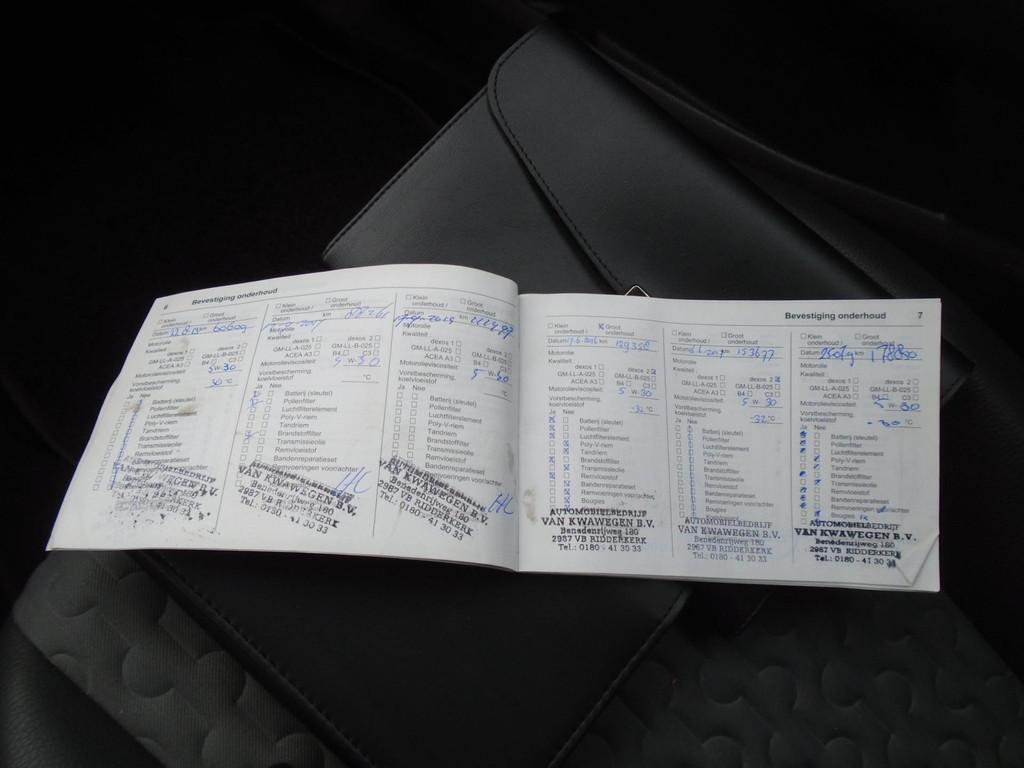 6 Bevestiging onderhoud
Klein onderhoud / Groot onderhoud
Datum km 60609
Motorolie
Kwaliteit
dexos 1 dexos 2
GM-LL-A-025 GM-LL-B-025
ACEA A3 B4 C3
Motorolieviscositeit 5 W-30
Vorstbescherming,
koelvloeistof 30 °C
Ja Nee
Batterij (sleutel)
Pollenfilter
Luchtfilterelement
Poly-V-riem
Tandriem
Brandstoffilter
Transmissieolie
Remvloeistof
Bandenreparatieset
Remvoeringen voor/achter
2987 VB RIDDERKERK
Tel.: 0180 - 41 30 33
Klein onderhoud / Groot onderhoud
Datum km
Motorolie
Kwaliteit
dexos 1 dexos 2
GM-LL-A-025 GM-LL-B-025
ACEA A3 B4 C3
Motorolieviscositeit 5 W-30
Vorstbescherming,
koelvloeistof °C
Ja Nee
Batterij (sleutel)
Pollenfilter
Luchtfilterelement
Poly-V-riem
Tandriem
Brandstoffilter
Transmissieolie
Remvloeistof
Bandenreparatieset
Remvoeringen voor/achter
VAN KWAWEGEN B.V.
Benedenrijweg 180
2987 VB RIDDERKERK
Tel.: 0180 - 41 30 33
Klein onderhoud / Groot onderhoud
Datum km
Motorolie
Kwaliteit
dexos 1 dexos 2
GM-LL-A-025 GM-LL-B-025
ACEA A3 B4 C3
Motorolieviscositeit 5 W-30
Vorstbescherming,
koelvloeistof °C
Ja Nee
Batterij (sleutel)
Pollenfilter
Luchtfilterelement
Poly-V-riem
Tandriem
Brandstoffilter
Transmissieolie
Remvloeistof
Bandenreparatieset
Remvoeringen voor/achter
VAN KWAWEGEN B.V.
Benedenrijweg 180
2987 VB RIDDERKERK
Tel.: 0180 - 41 30 33
Bevestiging onderhoud 7
Klein onderhoud / Groot onderhoud
Datum km 129328
Motorolie
Kwaliteit
dexos 1 dexos 2
GM-LL-A-025 GM-LL-B-025
ACEA A3 B4 C3
Motorolieviscositeit 5 W-30
Vorstbescherming,
koelvloeistof -32 °C
Ja Nee
Batterij (sleutel)
Pollenfilter
Luchtfilterelement
Poly-V-riem
Tandriem
Brandstoffilter
Transmissieolie
Remvloeistof
Bandenreparatieset
Remvoeringen voor/achter
Bougies
AUTOMOBIELBEDRIJF
VAN KWAWEGEN B.V.
Benedenrijweg 180
2987 VB RIDDERKERK
Tel.: 0180 - 41 30 33
Klein onderhoud / Groot onderhoud
Datum km 153677
Motorolie
Kwaliteit
dexos 1 dexos 2
GM-LL-A-025 GM-LL-B-025
ACEA A3 B4 C3
Motorolieviscositeit 5 W-30
Vorstbescherming,
koelvloeistof -32 °C
Ja Nee
Batterij (sleutel)
Pollenfilter
Luchtfilterelement
Poly-V-riem
Tandriem
Brandstoffilter
Transmissieolie
Remvloeistof
Bandenreparatieset
Remvoeringen voor/achter
Bougies
AUTOMOBIELBEDRIJF
VAN KWAWEGEN B.V.
Benedenrijweg 180
2987 VB RIDDERKERK
Tel.: 0180 - 41 30 33
Klein onderhoud / Groot onderhoud
Datum km
Motorolie
Kwaliteit
dexos 1 dexos 2
GM-LL-A-025 GM-LL-B-025
ACEA A3 B4 C3
Motorolieviscositeit 5 W-30
Vorstbescherming,
koelvloeistof -30 °C
Ja Nee
Batterij (sleutel)
Pollenfilter
Luchtfilterelement
Poly-V-riem
Tandriem
Brandstoffilter
Transmissieolie
Remvloeistof
Bandenreparatieset
Remvoeringen voor/achter
Bougies
AUTOMOBIELBEDRIJF
VAN KWAWEGEN B.V.
Benedenrijweg 180
2987 VB RIDDERKERK
Tel.: 0180 - 41 30 33